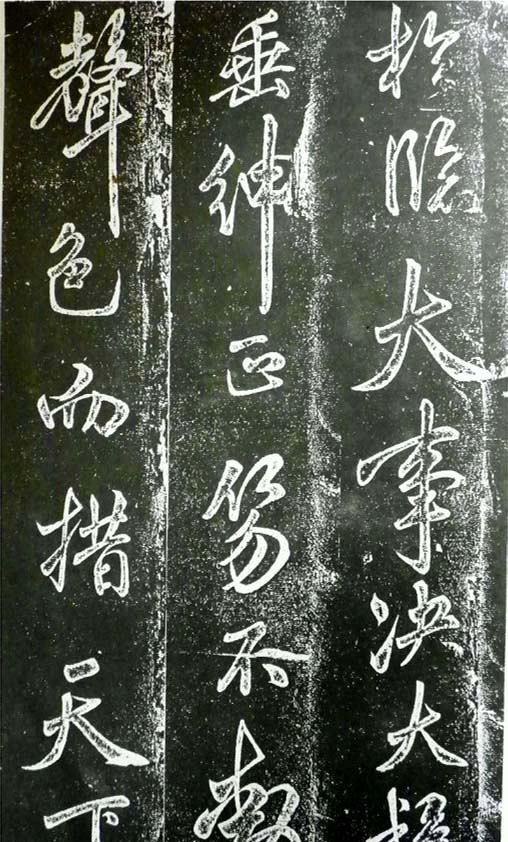 於臨大事决大
垂紳正笏不動
聲色而措天下